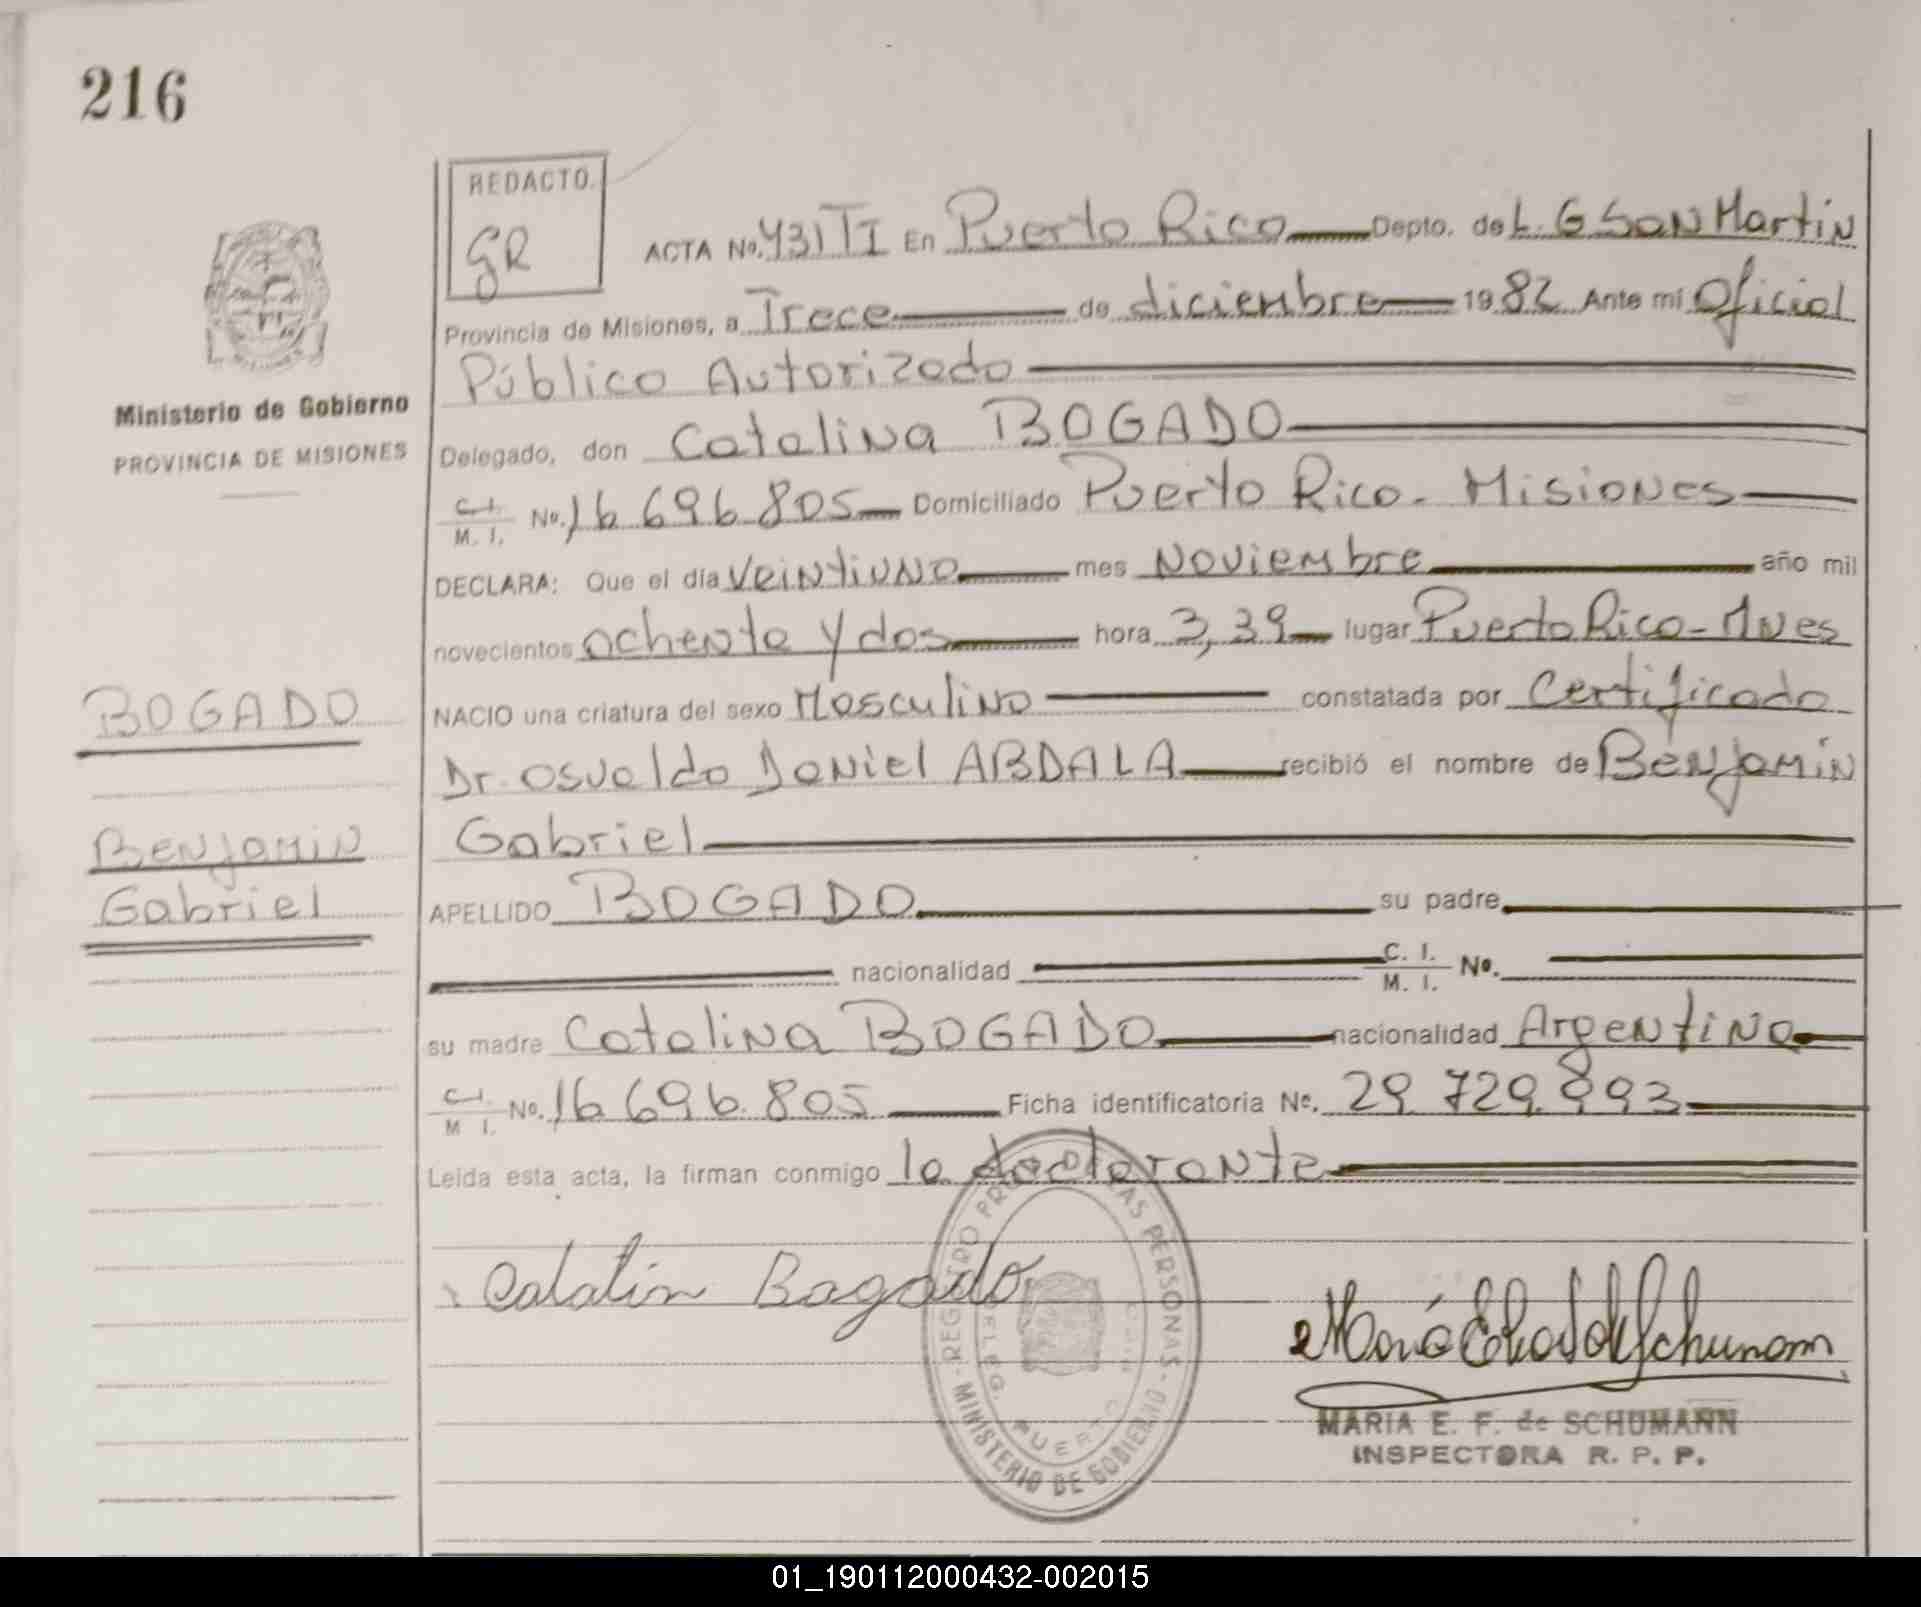 216
REDACTO.
GR
ACTA No. 431 TI En Puerto Rico Depto. de L. G San Martin
Provincia de Misiones, a Trece de diciembre 1982 Ante mí Oficial
Público Autorizado
Ministerio de Gobierno
PROVINCIA DE MISIONES
Delegado, don Catalina BOGADO
C.I. M. I. No. 16.696.805 Domiciliado Puerto Rico - Misiones
DECLARA: Que el día veintiuno mes Noviembre año mil
novecientos ochenta y dos hora 3,39 lugar Puerto Rico - Mnes
BOGADO
NACIO una criatura del sexo Masculino constatada por Certificado
Dr. Osvaldo Daniel ABDALA recibió el nombre de Benjamín
Benjamin
Gabriel
Gabriel
APELLIDO BOGADO su padre
nacionalidad C. I. M. I. No.
su madre Catalina BOGADO nacionalidad Argentina
C.I. M I. No. 16.696.805 Ficha identificatoria No. 29.729.893
Leída esta acta, la firman conmigo la declarante
Catalin Bogado
REGISTRO PERSONAS - MINISTERIO DE GOBIERNO -
DELEG. PUERTO
MARIA E. F. de SCHUMANN
INSPECTORA R. P. P.
01_190112000432-002015